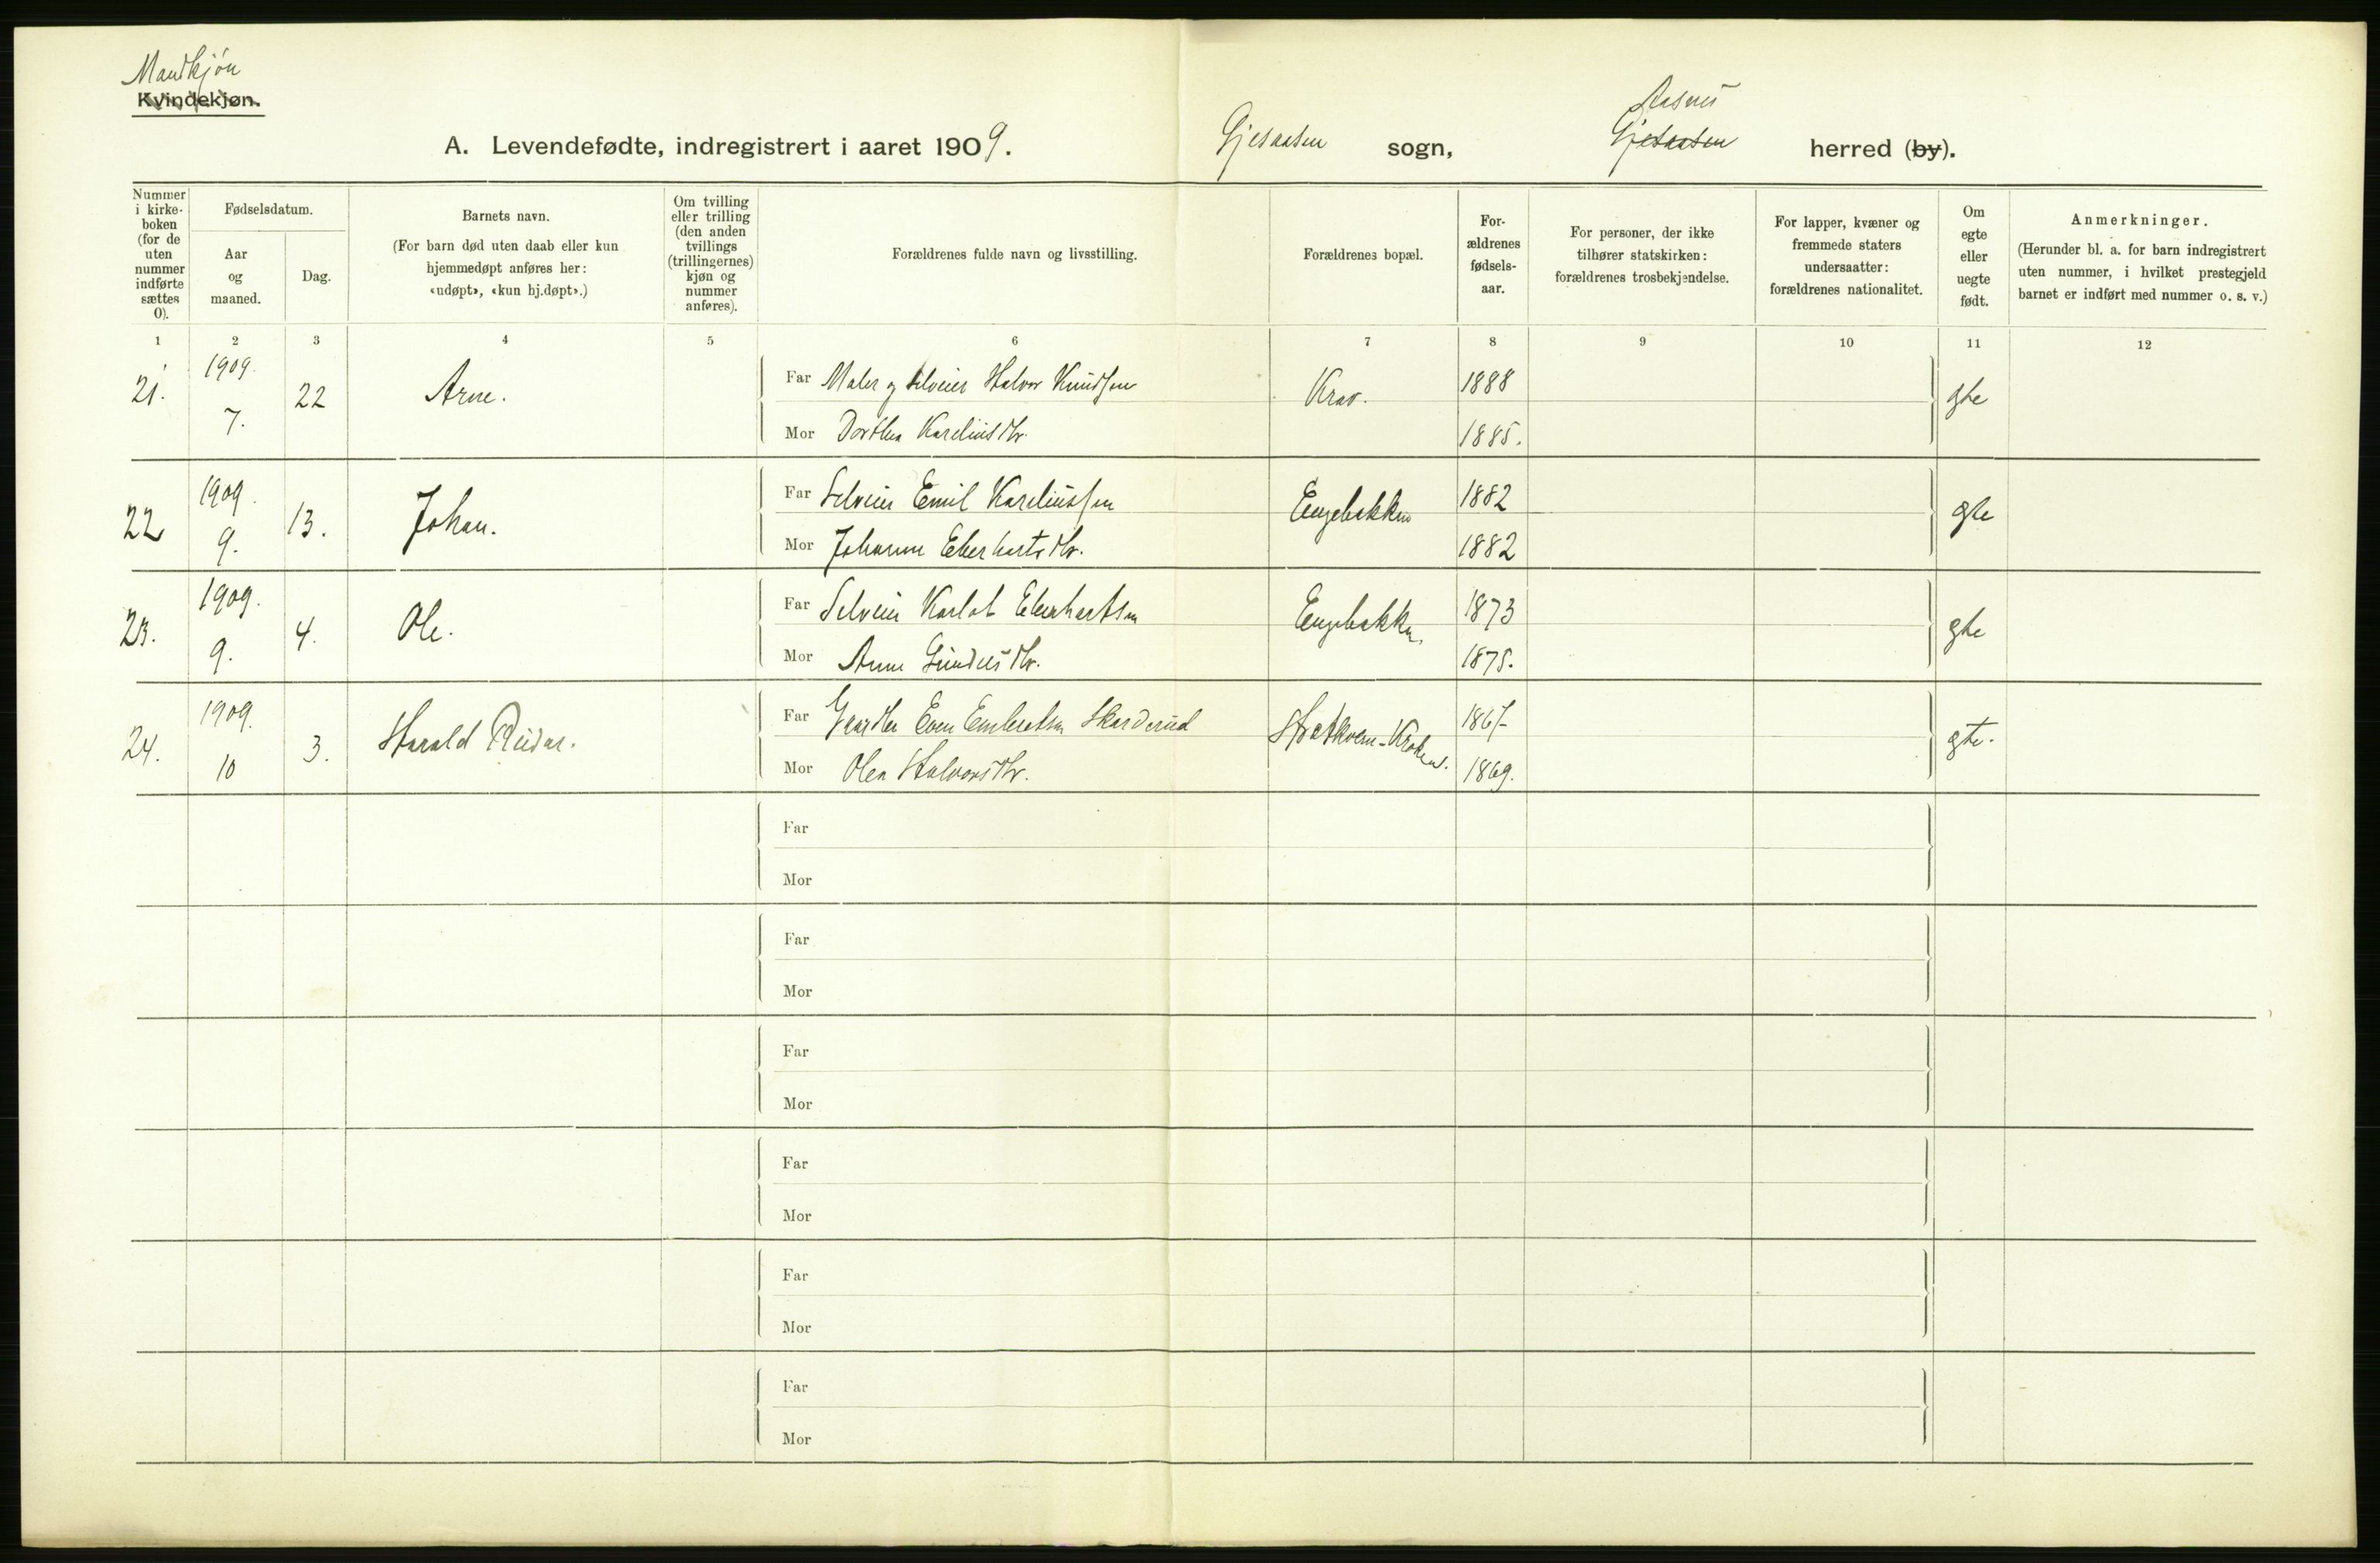 Mandkjøn
Kvindekjøn.
A. Levendefødte, indregistrert i aaret 1909.
Gjesaasen sogn,
Aasnes
Gjesaasen herred (by).
Nummer i kirke-boken (for de uten nummer indførte sættes 0).
Fødselsdatum.
Aar og maaned.
Dag.
Barnets navn.
(For barn død uten daab eller kun hjemmedøpt anføres her: «udøpt», «kun hj.døpt».)
Om tvilling eller trilling (den anden tvillings (trillingernes) kjøn og nummer anføres).
Forældrenes fulde navn og livsstilling.
Forældrenes bopæl.
For-ældrenes fødsels-aar.
For personer, der ikke tilhører statskirken: forældrenes trosbekjendelse.
For lapper, kvæner og fremmede staters undersaatter: forældrenes nationalitet.
Om egte eller uegte født.
Anmerkninger.
(Herunder bl. a. for barn indregistrert uten nummer, i hvilket prestegjeld barnet er indført med nummer o. s. v.)
1 2 3 4 5 6 7 8 9 10 11 12
21. 1909. 7. 22 Arne.
Far Maler og Selveier Halvor Knudsen Krav. 1888 gte
Mor Dorthea Kareliusdtr. 1885.
22 1909. 9. 13. Johan.
Far Selveier Emil Kareliussen Engebakken 1882 gte
Mor Johanne Eberhartsdtr. 1882
23. 1909. 9. 4. Ole.
Far Selveier Karlot Eberhartsen Engebakken. 1873 gte
Mor Anne Gundersdtr. 1875.
24. 1909. 10 3. Harald Reidar.
Far Gaardbr Even Embretsen Skarderud 1867 gte.
Mor Olea Halvorsdtr. 1869.
Far
Mor
Far
Mor
Far
Mor
Far
Mor
Far
Mor
Far
Mor